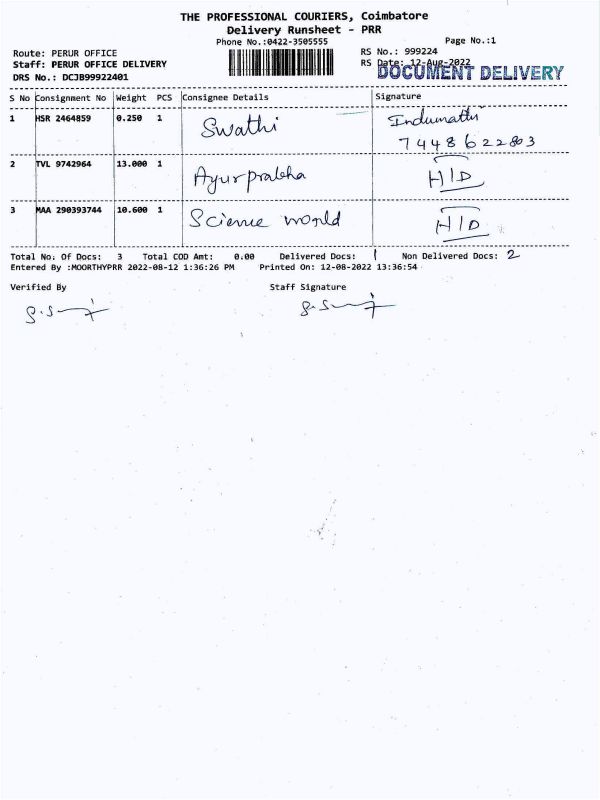 THE PROFESSIONAL COURIERS, Coimbatore
Delivery Runsheet - PRR
Phone No.:0422-3505555
Page No.:1
Route: PERUR OFFICE
RS No.: 999224
Staff: PERUR OFFICE DELIVERY
RS Date: 12-Aug-2022
DOCUMENT DELIVERY
DRS No.: DCJB99922401
S No Consignment No Weight PCS Consignee Details Signature
1 HSR 2464859 0.250 1 Swathi Indumathi
7448622803
2 TVL 9742964 13.000 1 Ayurprabha H/D
3 MAA 290393744 10.600 1 Science world H/D
Total No. Of Docs: 3 Total COD Amt: 0.00 Delivered Docs: 1 Non Delivered Docs: 2
Entered By :MOORTHYPRR 2022-08-12 1:36:26 PM Printed On: 12-08-2022 13:36:54
Verified By Staff Signature